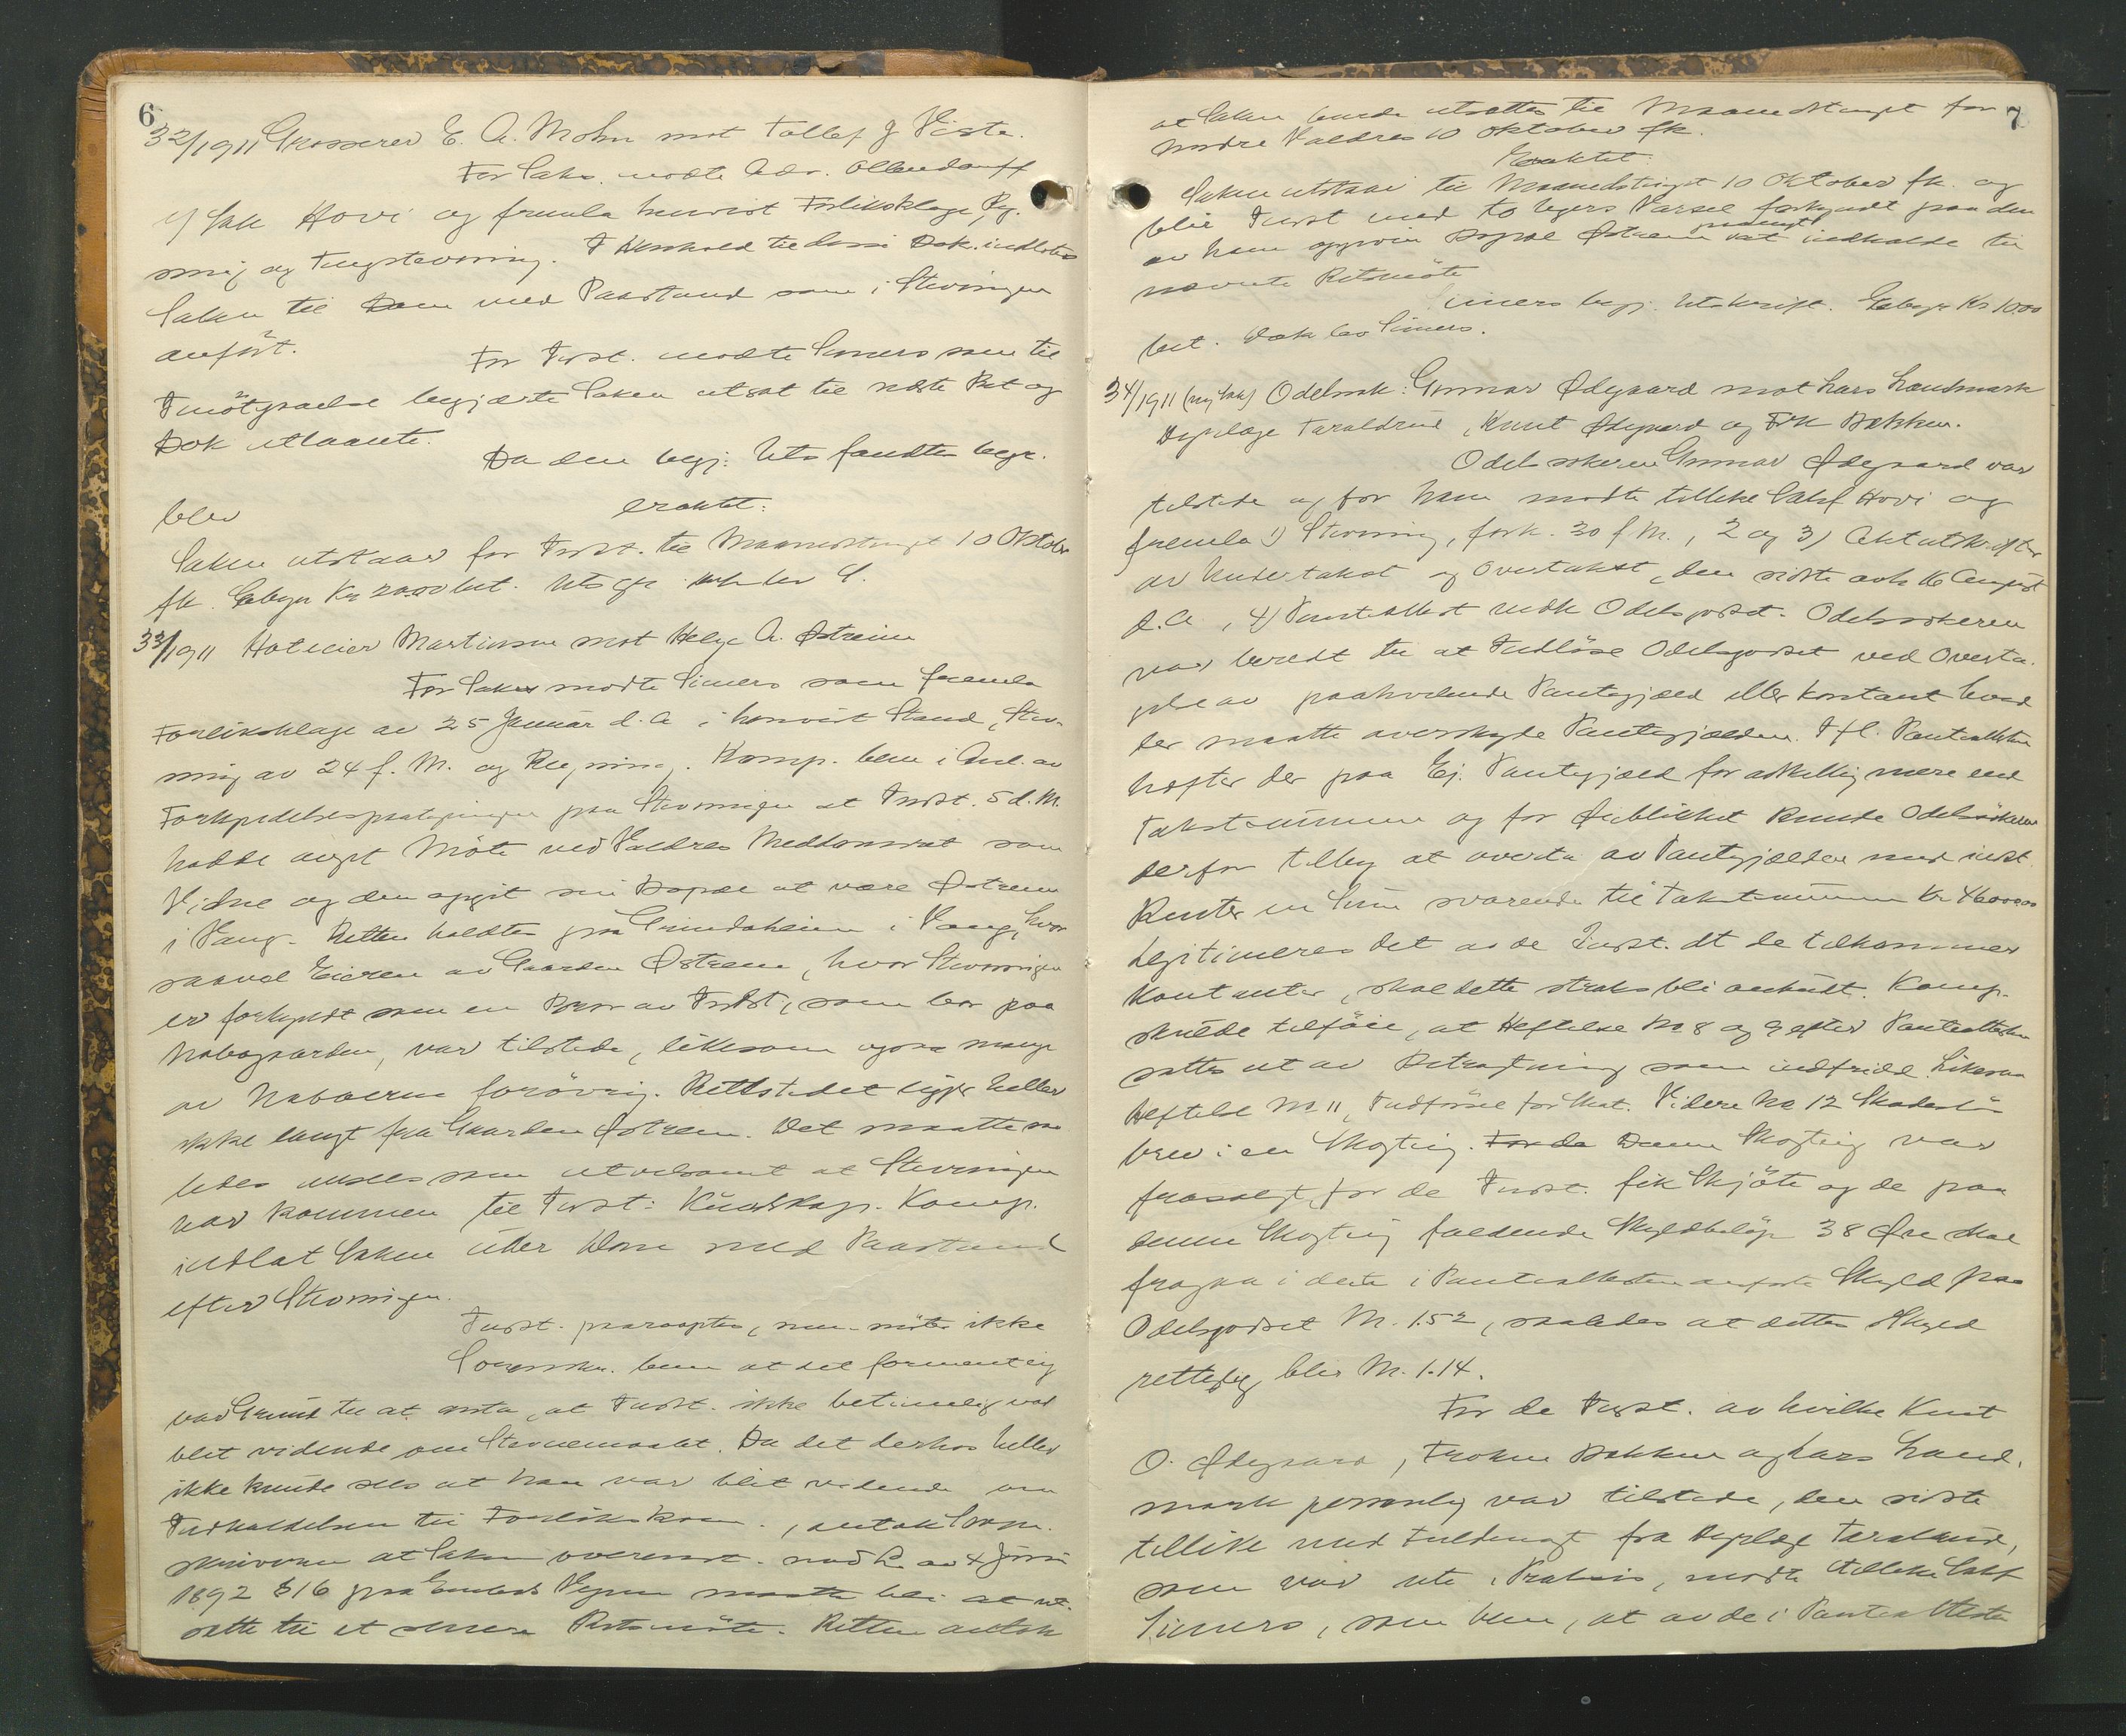 6
32/1911 Grosserer E. A. Mohn mot Tollef J Viste.
For Saks. mødte Adv. Ollendorff
v/ Sakf Hovi og fremla henvist Forliksklage, Reg-
ning og Tingstevning. I Henhold til disse Dok. indlotes
Saken til Dom med Paastand som i Stevningen
anført.
For Indst. mødte Simers som til
Imøtgaaelse begjærte Saken utsat til næste Ret og
Dok utlaante.
Da den begj. Uts fandtes begr.
blev
eragtet:
Saken utstaar for Indst. til Maanedstinget 10 Oktober
fk. Gebyr Kr 20.00 bet.
33/1911 Hoteleier Martinsen mot Helge A. Østreim
For Saks mødte Simers som fremla
Forliksklage av 25 Januar d. A i henvist Stand, Stev-
ning av 24 f. M. og Regning. Komp. bem i Anl. av
Forkyndelsespaategningen paa Stevningen at Indst. 5 d. M.
hadde avgit Møte ved Valdres Meddomsret som
Vidne og den opgit sin Bopæl at være Østreim
i Vang. Retten holdtes paa Grindaheim i Vang, hvor
saavel Eieren av Gaarden Østreim, hvor Stevningen
er forkyndt som en Bror av Indst, som bor paa
Nabogaarden, var tilstede, likesom ogsaa mange
av Naboerne forøvrig. Rettstedet ligger heller
ikke langt fra Gaarden Østreim. Det maatte saa
ledes ansees som utvilsomt at Stevningen
var kommen til Indst: Kundskap. Komp.
indlot Saken under Dom med Paastand
efter Stevningen.
Indst. paaroptes, men møtte ikke
Sorenskr. bem at det formentlig
var Grund til at anta, at Indst. ikke betimelig var
blet vidende om Stevnemaalet. Da det derhos heller
ikke kunde sees at han var blet vidende om
Indkaldelsen til Forlikskom., antok Soren-
skriveren at Saken overensst. med L. av 4 Juni
1892 § 16 paa Embeds Vegne maatte bli at ut-
sætte til et senere Retsmøte. Retten antok
7
at Saken burde utsættes til Maanedstinget for
nordre Valdres 10 Oktober fk.
Eragtet:
Saken utstaar til Maanedstinget 10 Oktober fk. og
blir Indst med to Ugers Varsel forkyndt paa den
av ham opgivne Bopæl Østreim at indkalde til
nævnte Retsmøte
Simers begj. Utskrift. Gebyr Kr 10.00
bet. Dok lev Simers.
34/1911 (ny Sak) Odelssak: Gunnar Ødegaard mot Lars Landmark
Dyrlæge Taraldrud, Knut Ødegaard og Frk Bækken.
Odelssøkeren Gunnar Ødegaard var
tilstede og for ham mødte tillike Sakf Hovi og
fremla 1) Stevning, fork. 30 f M., 2 og 3) Aktutskrifter
av Undertakst og Overtakst, den sidste avh 16 August
d. A, 4) Panteattest vedk Odelsgodset. Odelssøkeren
var beredt til at Indløse Odelsgodset ved Overta-
gelse av paahvilende Pantegjæld eller kontant hvad
der maatte overskyte Pantegjælden. Ifl. Panteattesten
hefter der paa Ej. Pantegjæld for adskillig mere end
Takstsummen og for Øieblikket kunde Odelssøkeren
derfor tilby at overta av Pantegjælden med indst.
Renter en Sum svarende til Takstsummen Kr 4600.00
Legitimeres det av de Indst. at de tilkommer
Kontanter, skal dette straks bli anskudt. Komp.
skulde tilføie, at Heftelse No 8 og 9 efter Panteattesten
sættes ut av Betragtning som indfriede. Likesaa
Heftelse No 11, Indførsel for Skat. Videre No 12 Skadesløs
brev i en Skogteig. For da Denne Skogteig var
frasolgt, før de Indst. fik Skjøte og de paa
denne Skogteig faldende Skyldbeløp 38 Øre skal
fragaa i dette i Panteattesten anførte Skyld paa
Odelsgodset M. 1.52, saaledes at dettes Skyld
rettelig blir M. 1.14.
For de Indst. av hvilke Knut
O. Ødegaard, Frøken Bækken og Lars Land-
mark personlig var tilstede, den sidste
tillike med Fuldmagt fra Dyrlæge Taraldrud,
som var ute i Praksis, mødte tillike Sakf
Simers, som bem, at av de i Panteattesten